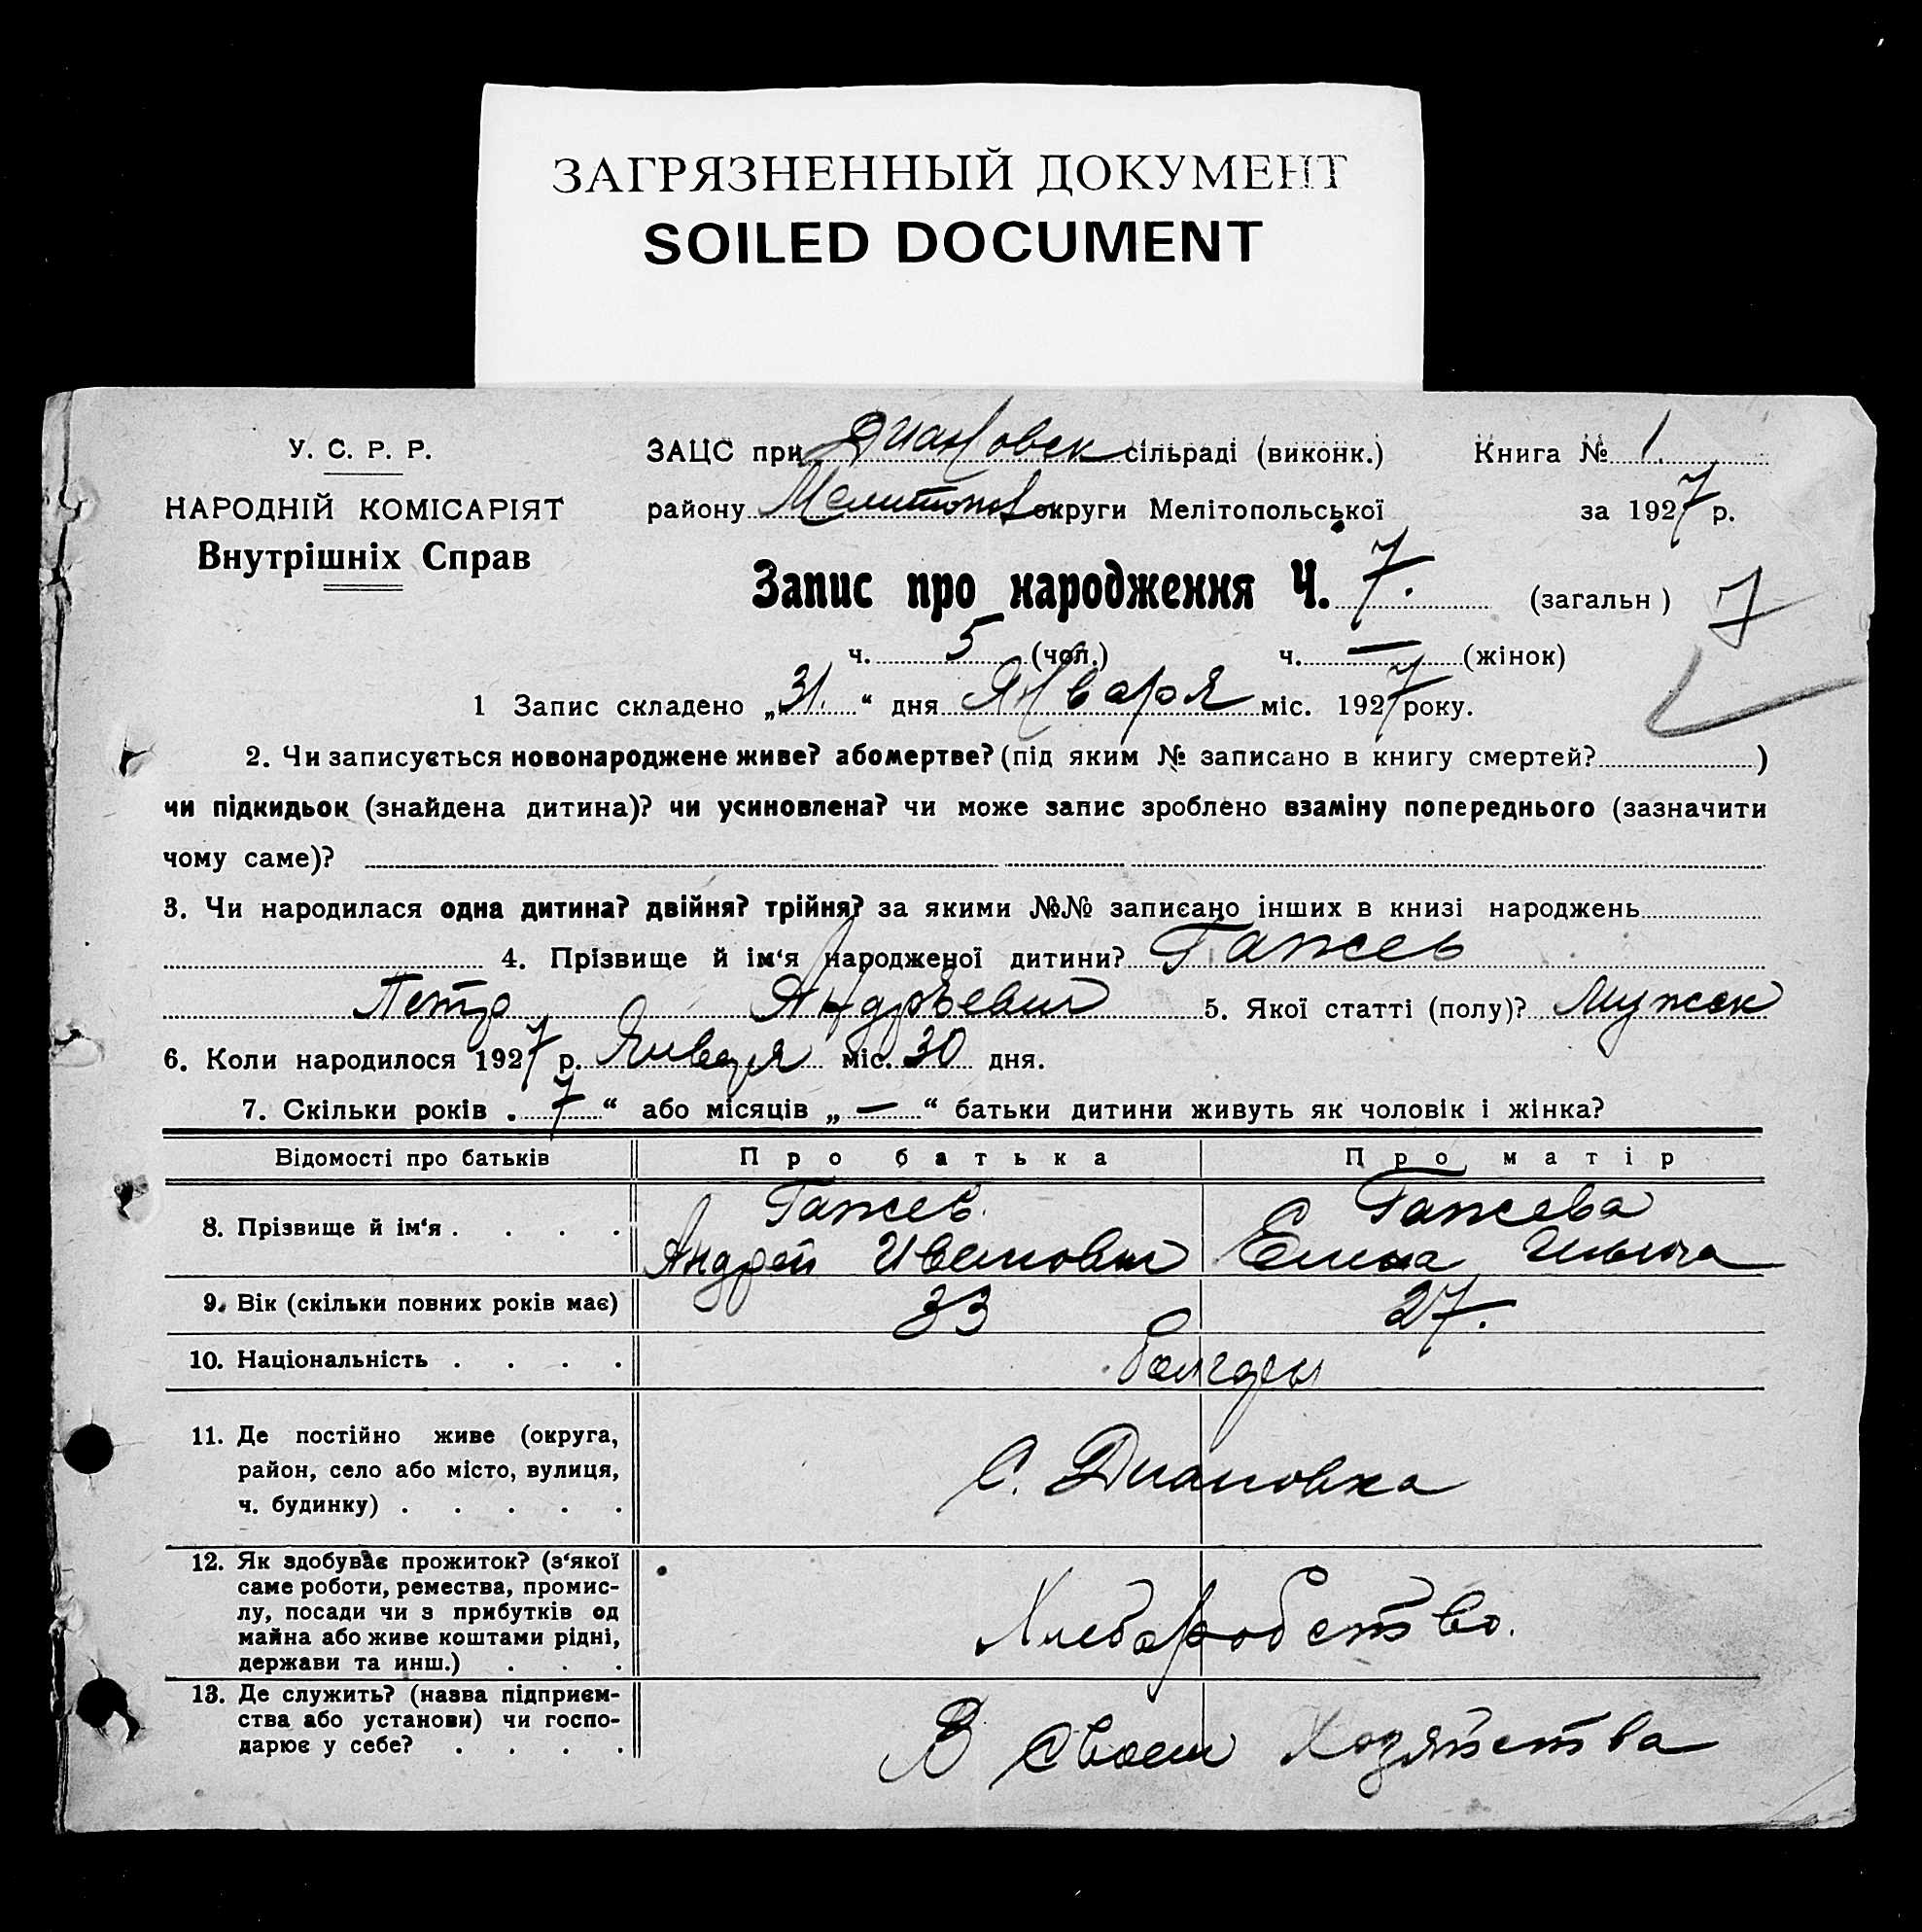 ЗАГРЯЗНЕННЫЙ ДОКУМЕНТ
SOILED DOCUMENT
У. С. Р. Р.
НАРОДНІЙ КОМІСАРІЯТ
Внутрішніх Справ
ЗАЦС при Диановск сільраді (виконк.) Книга № 1.
району Мелитопол округи Мелітопольської за 1927 р.
Запис про народження Ч. 7. (загальн) 7
ч. 5 (чол.) ч. — (жінок)
1 Запис складено „31.“ дня Января міс. 1927 року.
2. Чи записується новонароджене живе? або мертве? (під яким № записано в книгу смертей? )
чи підкидьок (знайдена дитина)? чи усиновлена? чи може запис зроблено взаміну попереднього (зазначити
чому саме)?
3. Чи народилася одна дитина? двійня? трійня? за якими №№ записано інших в книзі народжень
4. Прізвище й ім‘я народженої дитини? Гажев
Петр Андрьевич 5. Якої статті (полу)? Мужск
6. Коли народилося 1927 р. Января міс. 30 дня.
7. Скільки років „ 7 “ або місяців „ — “ батьки дитини живуть як чоловік і жінка?
Відомості про батьків Про батька Про матір
8. Прізвище й ім‘я . . . . Гажев. Гажева
Андрей Иванович Елена
9. Вік (скільки повних років має) 33 27.
10. Національність . . . . болгары
11. Де постійно живе (округа,
район, село або місто, вулиця,
ч. будинку) . . . . .
С. Диановка
12. Як здобуває прожиток? (з‘якої
саме роботи, ремества, промис-
лу, посади чи з прибутків од
майна або живе коштами рідні,
держави та инш.) . . .
Хлеборобство.
13. Де служить? (назва підприєм-
ства або установи) чи госпо-
дарює у себе? . . . .
В своем Хозяйства